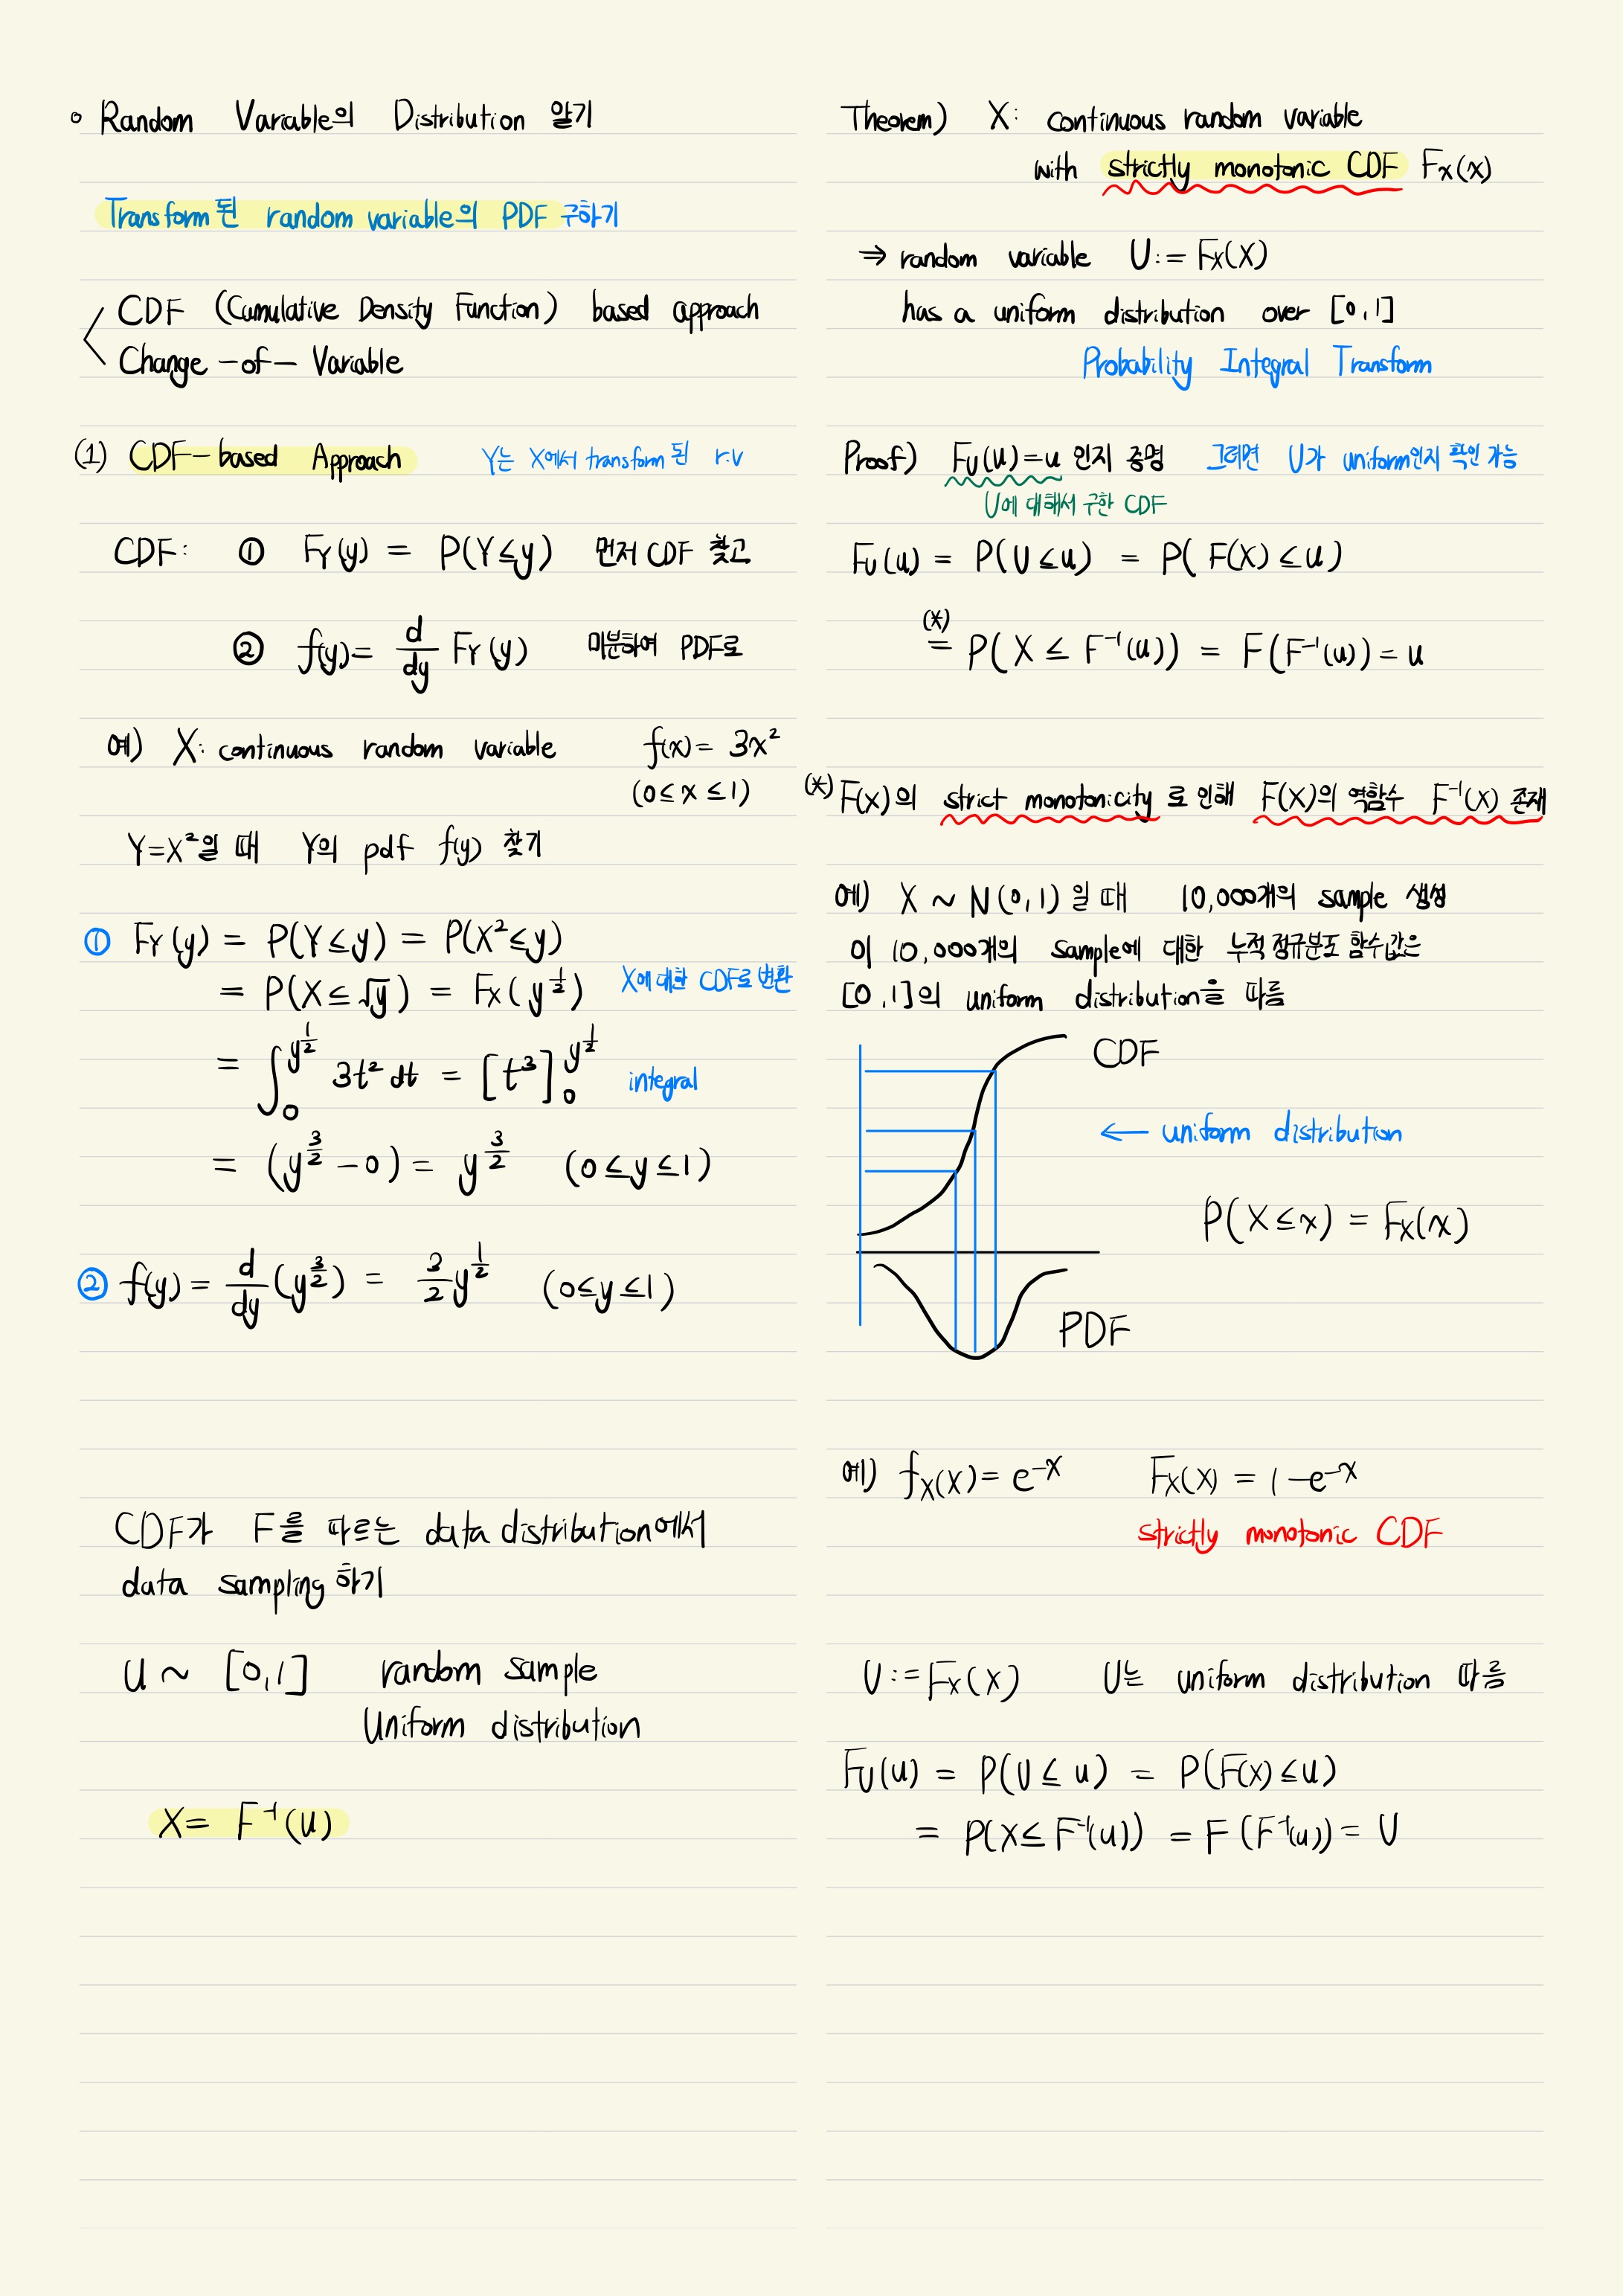 ◦ Random Variable의 Distribution 알기
Transform 된 random variable의 PDF 구하기
CDF (Cumulative Density Function) based approach
Change-of-Variable
(1) CDF-based Approach Y는 X에서 transform 된 r.v
CDF: ① F_Y(y) = P(Y≤y) 먼저 CDF 찾고
② f(y) = d/dy F_Y(y) 미분하여 PDF로
예) X: continuous random variable f(x) = 3x²
(0≤x≤1)
Y=X²일 때 Y의 pdf f(y) 찾기
① F_Y(y) = P(Y≤y) = P(X²≤y)
= P(X≤√y) = F_X(y^{1/2}) X에 대한 CDF로 변환
= ∫_0^{y^{1/2}} 3t² dt = [t³]_0^{y^{1/2}} integral
= (y^{3/2} - 0) = y^{3/2} (0≤y≤1)
② f(y) = d/dy (y^{3/2}) = 3/2 y^{1/2} (0≤y≤1)
CDF가 F를 따르는 data distribution에서
data sampling 하기
u ~ [0,1] random sample
Uniform distribution
X = F⁻¹(u)
Theorem) X: continuous random variable
with strictly monotonic CDF F_X(x)
⇒ random variable U := F_X(X)
has a uniform distribution over [0,1]
Probability Integral Transform
Proof) F_U(u) = u 인지 증명 그러면 U가 uniform인지 확인 가능
U에 대해서 구한 CDF
F_U(u) = P(U≤u) = P(F(X)≤u)
(*)
= P(X ≤ F⁻¹(u)) = F(F⁻¹(u)) = u
(*) F(x)의 strict monotonicity로 인해 F(x)의 역함수 F⁻¹(x) 존재
예) X ~ N(0,1)일 때 10,000개의 sample 생성
이 10,000개의 sample에 대한 누적 정규분포 함수값은
[0,1]의 uniform distribution을 따름
CDF
← uniform distribution
P(X≤x) = F_X(x)
PDF
예) f_X(x) = e^{-x} F_X(x) = 1-e^{-x}
strictly monotonic CDF
U := F_X(X) U는 uniform distribution 따름
F_U(u) = P(U≤u) = P(F(x)≤u)
= P(X≤F⁻¹(u)) = F(F⁻¹(u)) = U